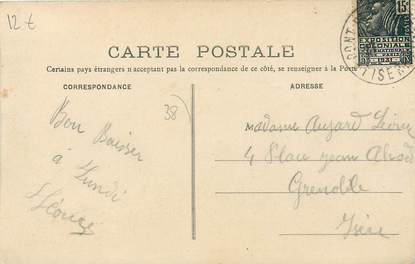 12 €
15c
EXPOSITION
COLONIALE
INTERNATIONALE
PARIS
1931
PONT
ISERE
CARTE POSTALE
Certains pays étrangers n'acceptant pas la correspondance de ce côté, se renseigner à la Poste
CORRESPONDANCE
ADRESSE
38
Bon Baiser
à Lundi
Madame
4 Place Jean
Grenoble
Isère